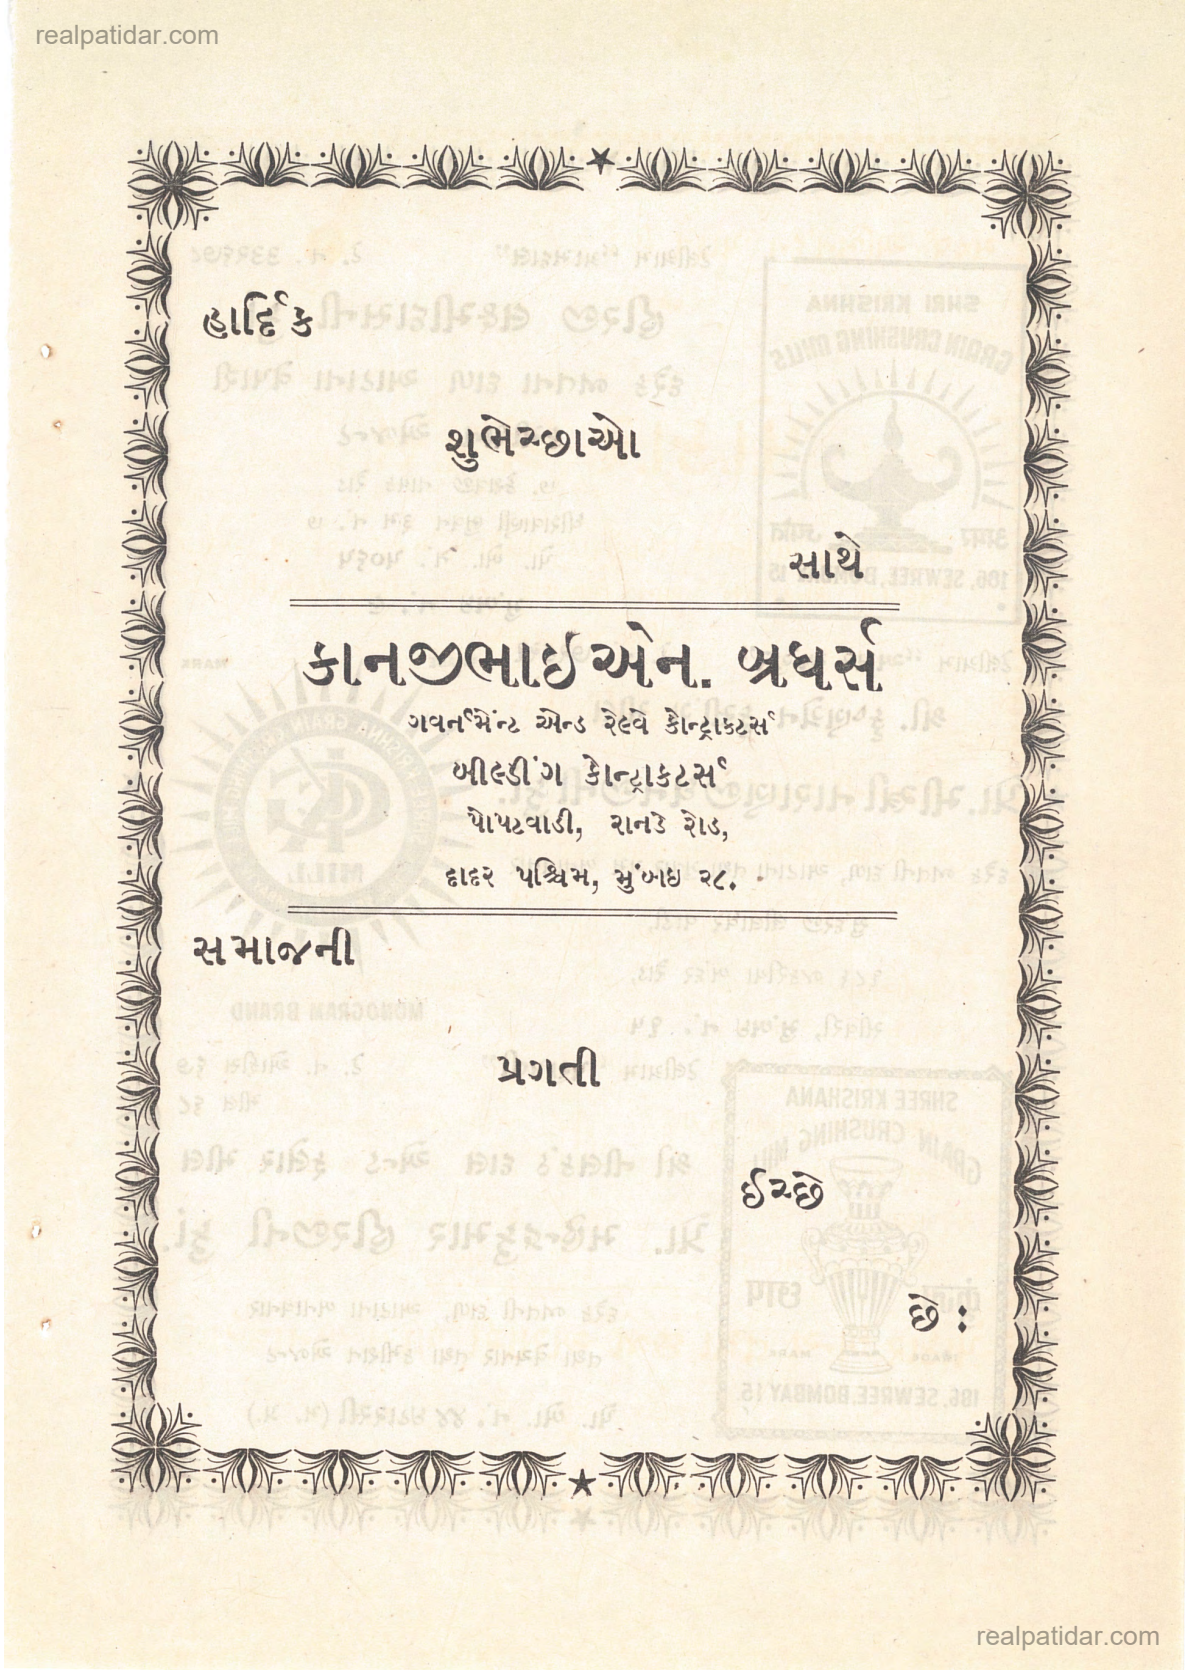 realpatidar.com
હાર્દિક
શુભેચ્છાઓ
સાથે
કાનજીભાઇ એન. બ્રધર્સ
ગવર્નમેંન્ટ એન્ડ રેલ્વે કોન્ટ્રાક્ટર્સ
બીલ્ડીંગ કોન્ટ્રાકટર્સ
પોપટવાડી, રાનડે રોડ,
દાદર પશ્ચિમ, મુંબઇ ૨૮.
સમાજની
પ્રગતી
ઈચ્છે
છે :
realpatidar.com